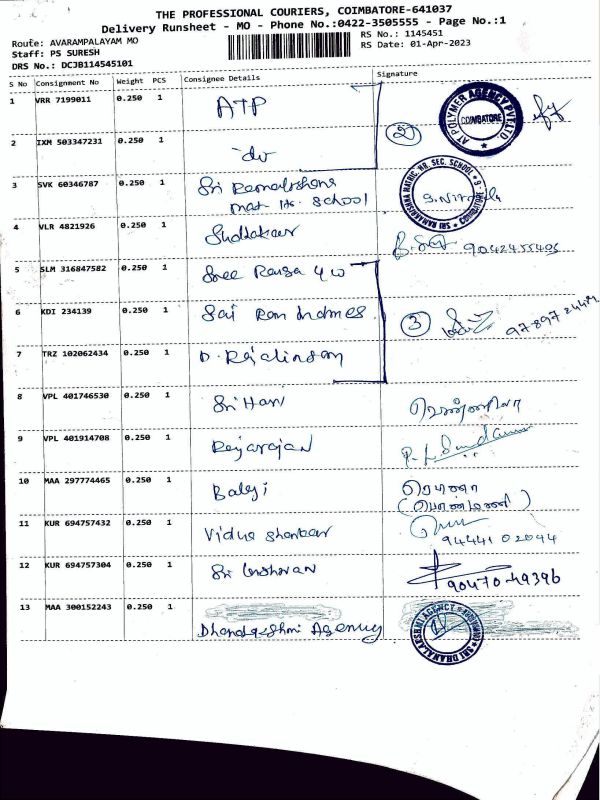 THE PROFESSIONAL COURIERS, COIMBATORE-641037
Delivery Runsheet - MO - Phone No.:0422-3505555 - Page No.:1
Route: AVARAMPALAYAM MO
RS No.: 1145451
Staff: PS SURESH
RS Date: 01-Apr-2023
DRS No.: DCJB114545101
S No Consignment No Weight PCS Consignee Details Signature
1 VRR 7199011 0.250 1 ATP
AT POLYMER AGENCY PVT.LTD
COIMBATORE
2 IXM 503347231 0.250 1 do
2
3 SVK 60346787 0.250 1 Sri Ramakrishna
mat Hr. School
SRI RAMAKRISHNA MATRIC. HR. SEC. SCHOOL
4 VLR 4821926 0.250 1 Sudhakar
9042455496
5 SLM 316847582 0.250 1 Sree
6 KDI 234139 0.250 1 Sai Ram
3
7 TRZ 102062434 0.250 1 D. Rajalingam
8 VPL 401746530 0.250 1 Sri Hari
9 VPL 401914708 0.250 1 Rajarajan
10 MAA 297774465 0.250 1 Balaji
11 KUR 694757432 0.250 1 Vidua Shankar
9444102044
12 KUR 694757304 0.250 1 Sri
90470-49396
13 MAA 300152243 0.250 1
Dhandalakshmi Agency
SRI DHANALAKSHMI AGENCY